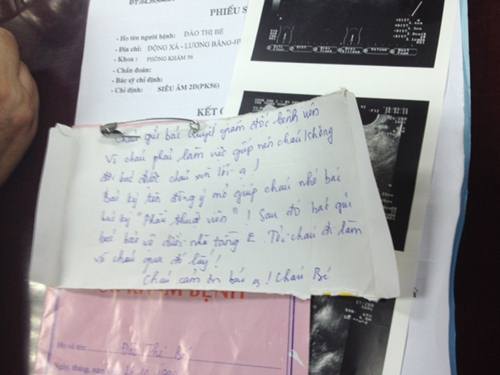 PHIẾU S
- Họ tên người bệnh: ĐÀO THỊ BÉ
- Địa chỉ: ĐỘNG XÁ - LƯƠNG BẰNG-
- Khoa : PHÒNG KHÁM 56
- Chẩn đoán:
- Bác sỹ chỉ định:
- Chỉ định: SIÊU ÂM 2D(PK56)
KẾT
Cháu gửi bác Quyết giám đốc bệnh viện
Vì cháu phải làm việc giúp nên cháu không
đợi bác được cháu xin lỗi ạ!
Bác ký tên đồng ý mổ giúp cháu nhé bác
bác ký "Phẫu thuật viên"! Sau đó bác gửi
bác bảo vệ dưới nhà tầng E. Tối cháu đi làm
về cháu qua đó lấy!
Cháu cảm ơn bác ạ! Cháu Bé
KHÁM BỆNH
Họ và tên: Đào Thị Bé
Ngày, tháng, năm